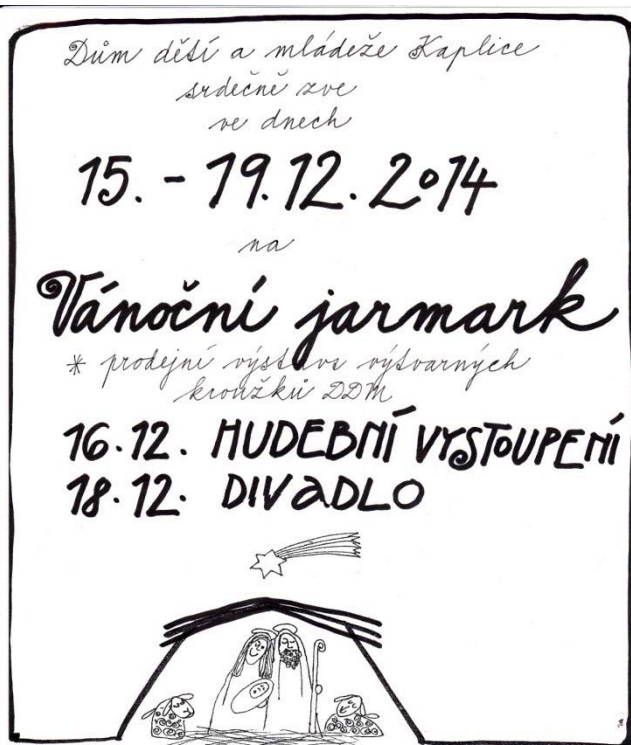 Dům dětí a mládeže Kaplice
srdečně zve
ve dnech
15. - 19.12. 2014
na
Vánoční jarmark
* prodejní výstava výtvarných
kroužků DDM
16.12. HUDEBNÍ VYSTOUPENÍ
18.12. DIVADLO